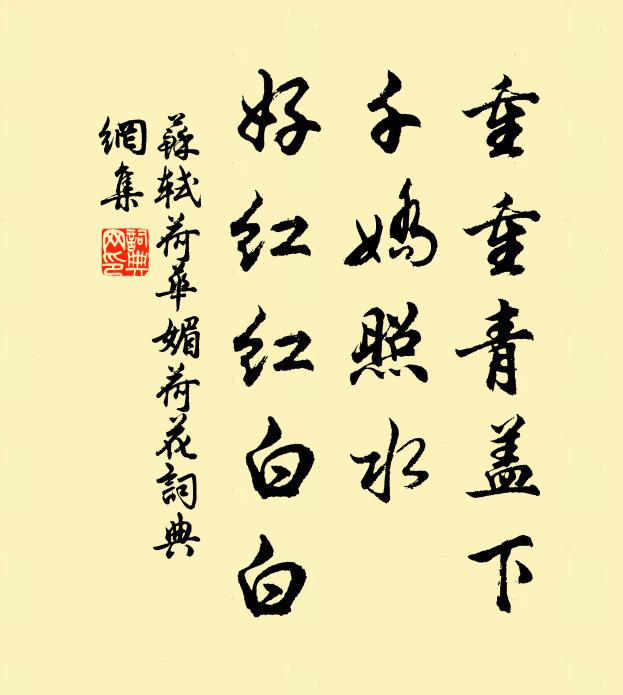 重重青盖下
千嬌照水
好红红白白
蘇軾荷華媚荷花詞典
網集
詞典网印